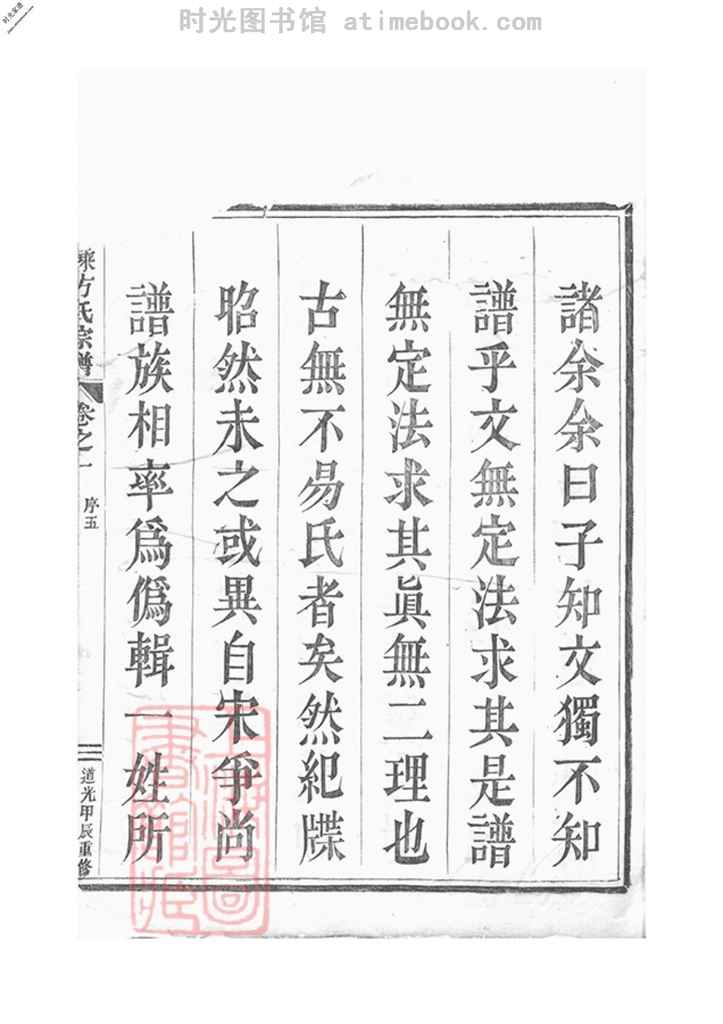 时光图书馆 atimebook.com
諸余余曰子知文獨不知
譜乎文無定法求其是譜
無定法求其眞無二理也
古無不易氏者矣然紀牒
昭然未之或異自宋爭尚
譜族相率爲僞輯一姓所
方氏宗譜
卷之一
序五
道光甲辰重修